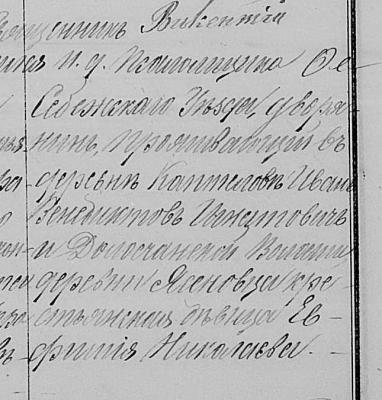 Священникъ Викентій
и. д. Псаломщика Ѳе
Себежскаго Уѣзда, дворя-
нинъ, проживающій въ
деревнѣ Каптеловѣ Иванъ
Венедиктовъ
и Долосчанской Волости
деревни Ясеновца кре-
стьянская дѣвица Ев-
фимія Николаева.